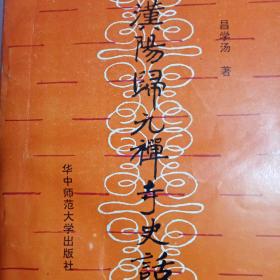 漢陽歸元禪寺史話
昌学汤 著
华中师范大学出版社